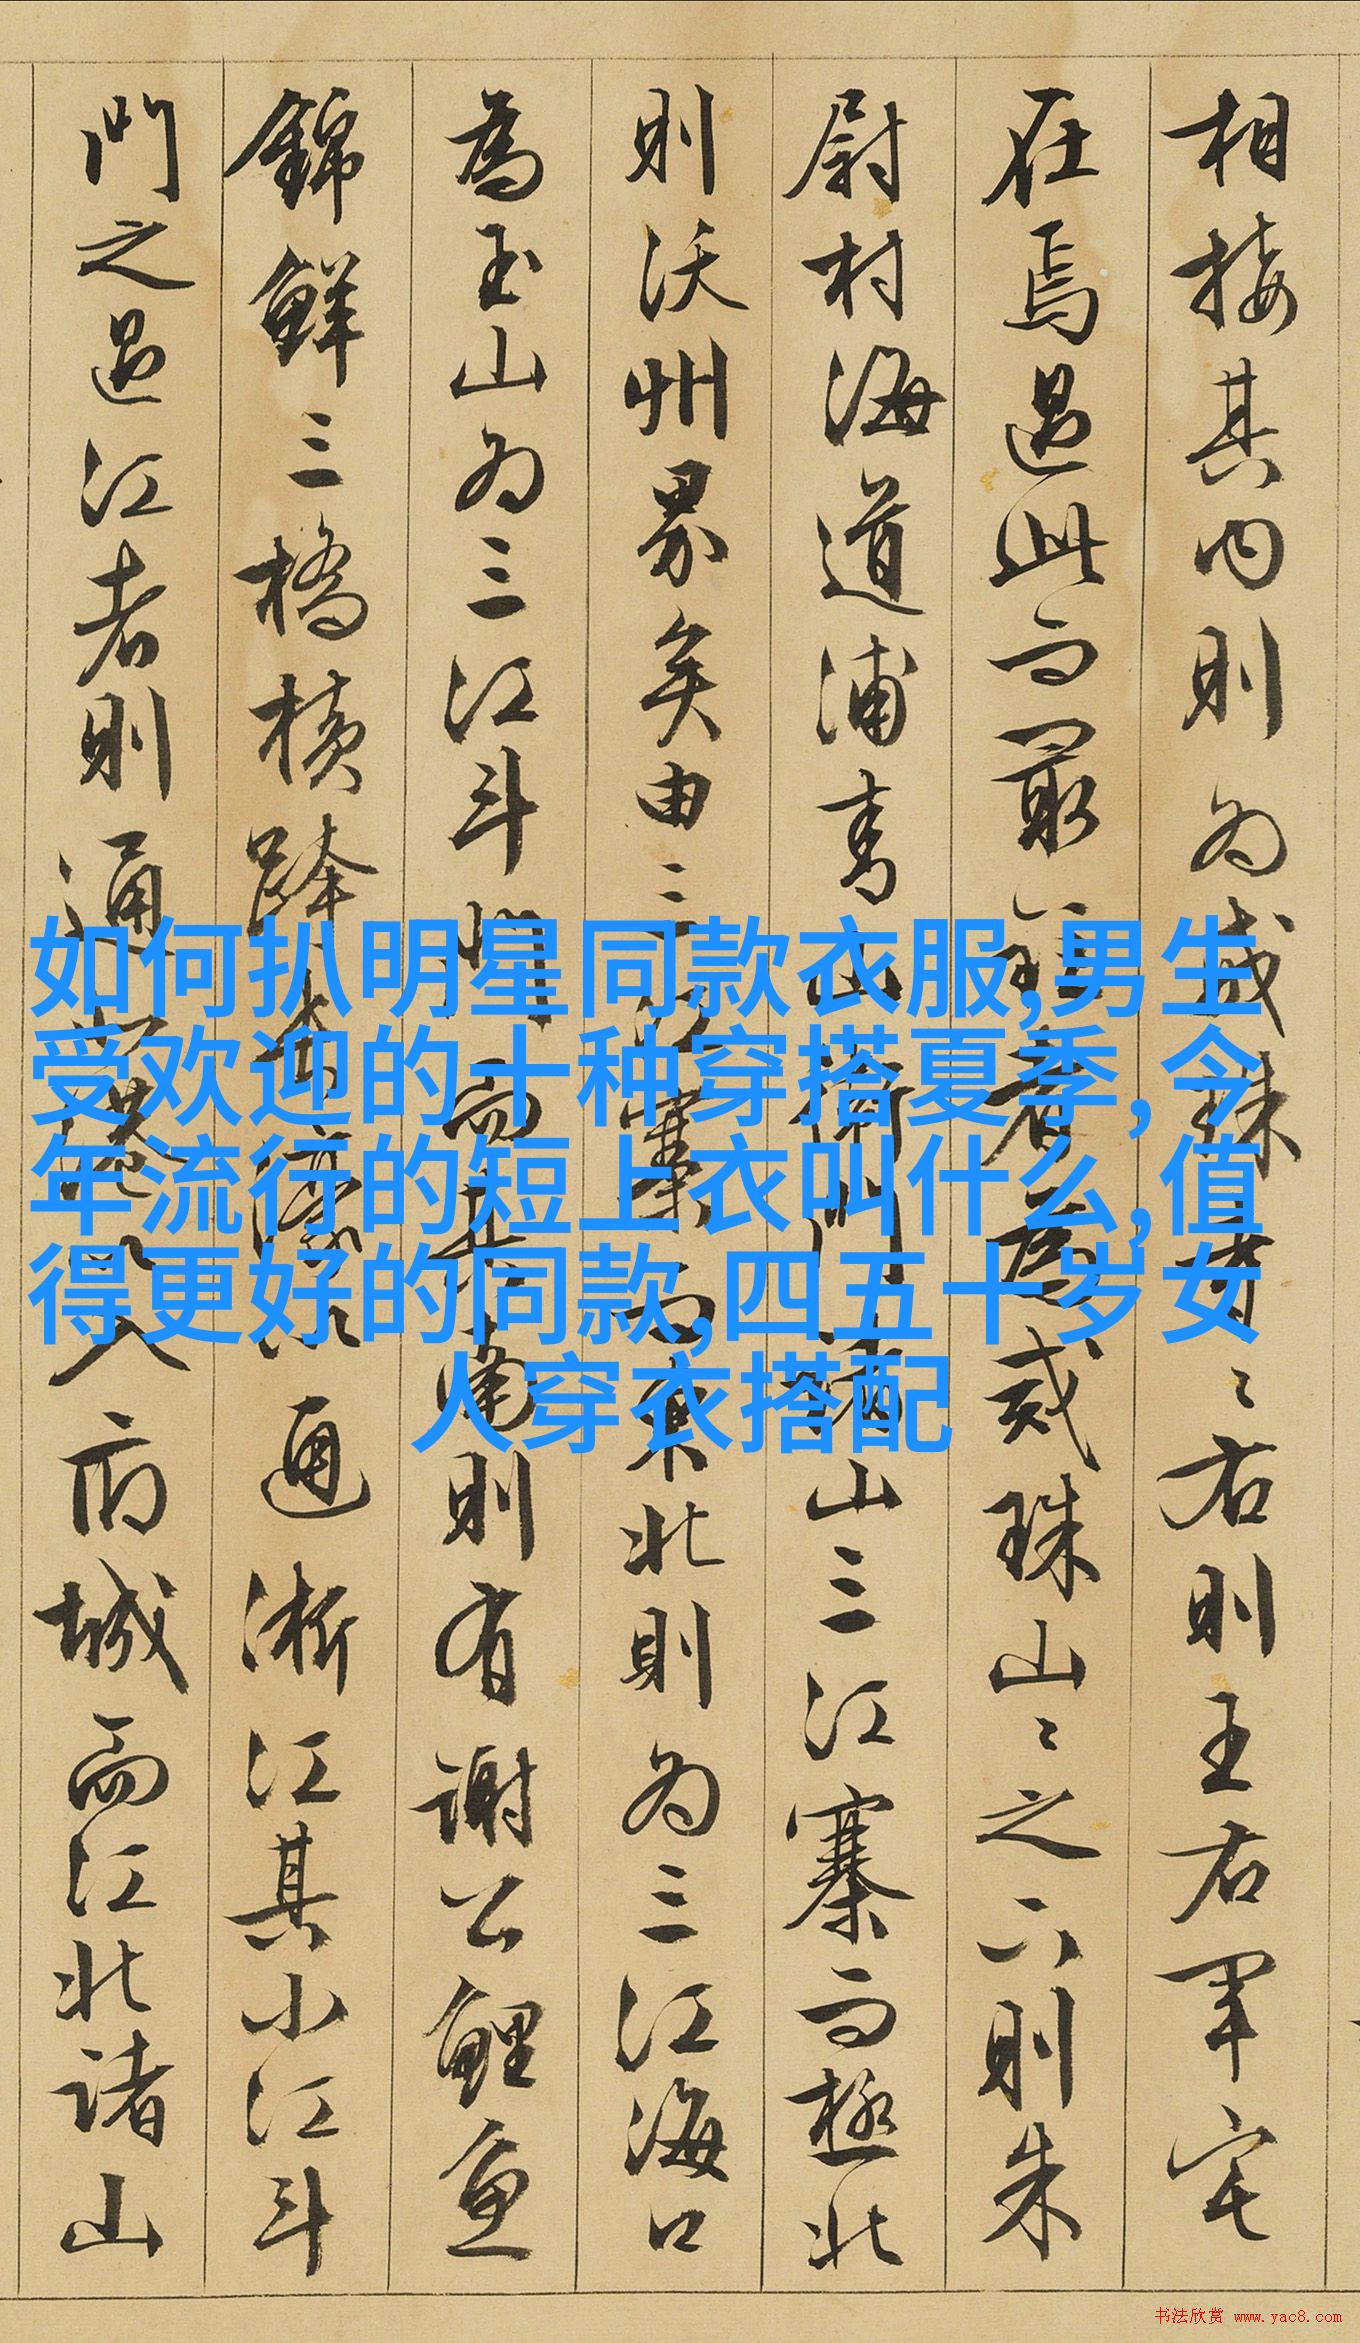 相接其内则为或珠者
在焉過此而最
尉村海道浦
則沃州界矣由三江寨而東北則為三江海口
為玉山為三江斗門而其南則有谢公鯉魚
錦鮮三橋横跨
通浙江其小江斗
門之過江者則通
入府城而江北诸山
山三江寨而極北
或珠山〻之下則朱
〻右則王右軍宅
如何扒明星同款衣服,男生
受欢迎的十种穿搭夏季,今
年流行的短上衣叫什么,值
得更好的同款,四五十岁女
人穿衣搭配
书法欣赏 www.yac8.com